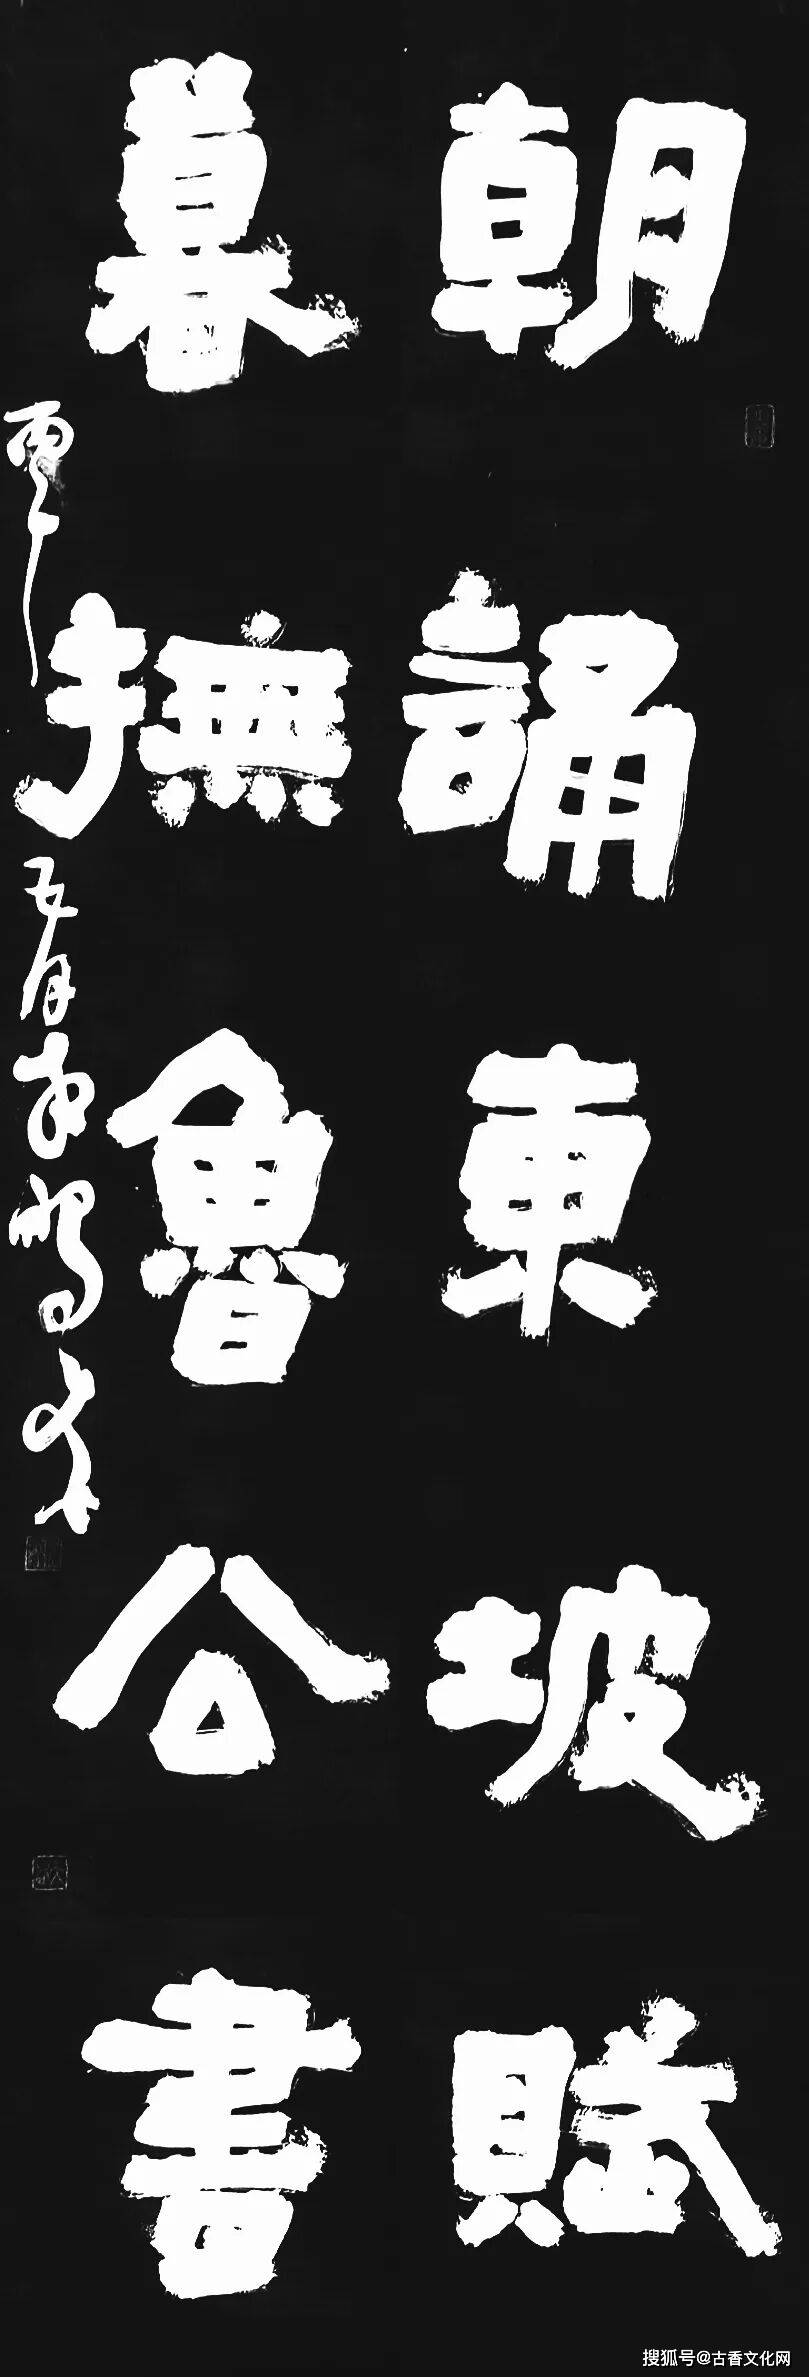 朝誦東坡賦
暮撫魯公書
丙午
五月
搜狐号@古香文化网